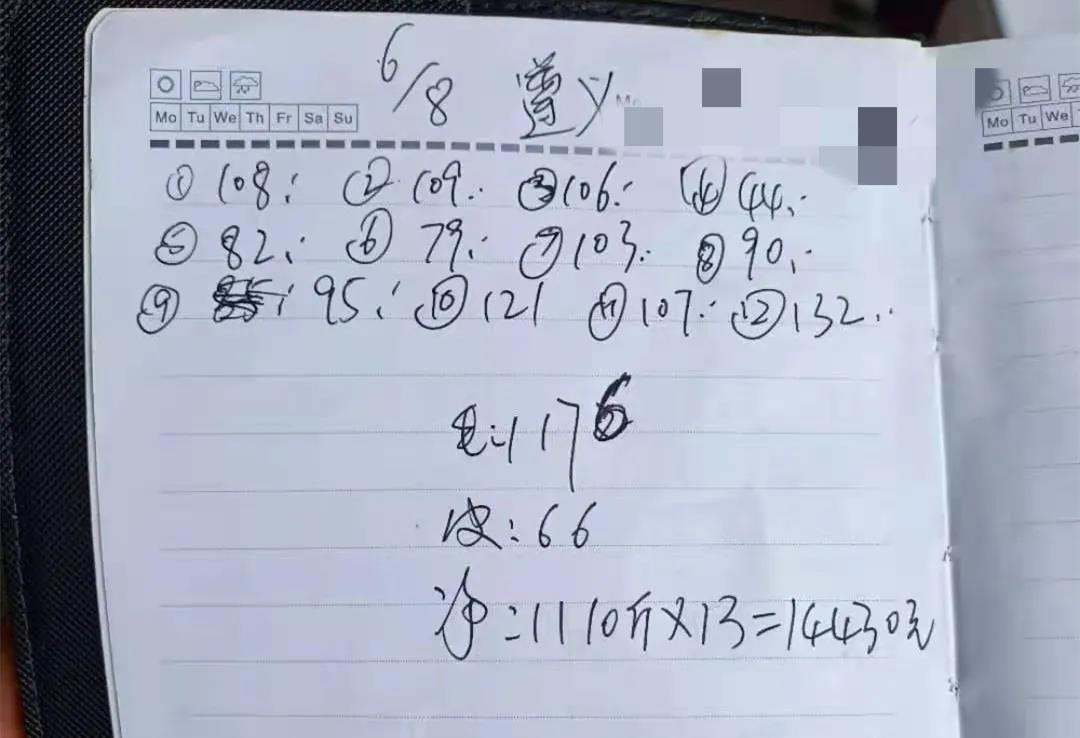 6/8 遵义
Mo Tu We Th Fr Sa Su
Mo Tu We
① 108; ② 109; ③ 106; ④ 44;
⑤ 82; ⑥ 79; ⑦ 103; ⑧ 90;
⑨ 95; ⑩ 121 ⑪ 107; ⑫ 132;
毛:1176
皮:66
净:1110斤×13=14430元